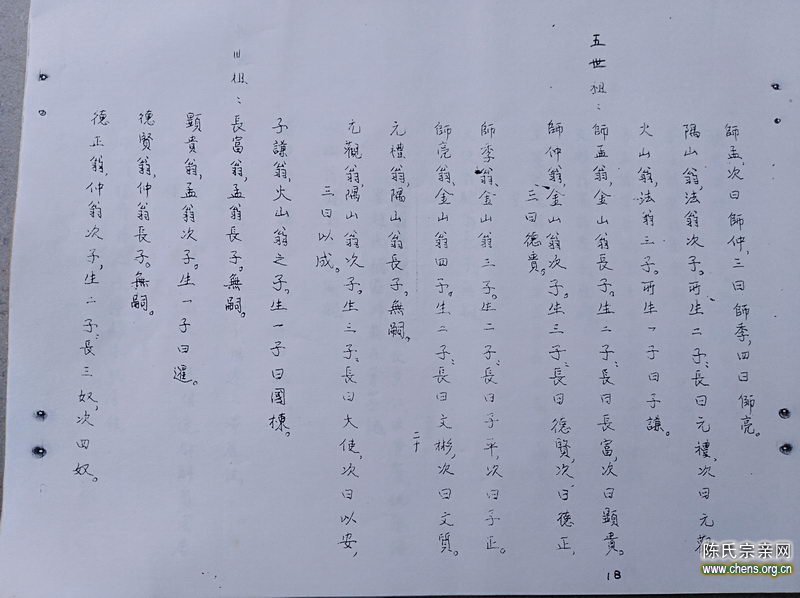 師孟,次曰師仲,三曰師季,四曰師亮。
隅山翁,法翁次子。所生二子:長曰元禮,次曰元觀
火山翁,法翁三子。所生一子曰子謙。
五世祖:師孟翁,金山翁長子。生二子:長曰長富,次曰顯貴。
師仲翁,金山翁次子。生三子:長曰德賢,次曰德正,
三曰德貴。
師季翁,金山翁三子。生二子:長曰子平,次曰子正。
師亮翁,金山翁四子。生二子:長曰文彬,次曰文質。
元禮翁,隅山翁長子。無嗣。
元觀翁,隅山翁次子。生三子:長曰大使,次曰以安,
三曰以成。
子謙翁,火山翁之子。生一子曰國棟。
祖:長富翁,孟翁長子。無嗣。
顯貴翁,孟翁次子。生一子曰暹。
德賢翁,仲翁長子。無嗣。
德正翁,仲翁次子,生二子:長三奴,次四奴。
二十
18
陈氏宗亲网
www.chens.org.cn